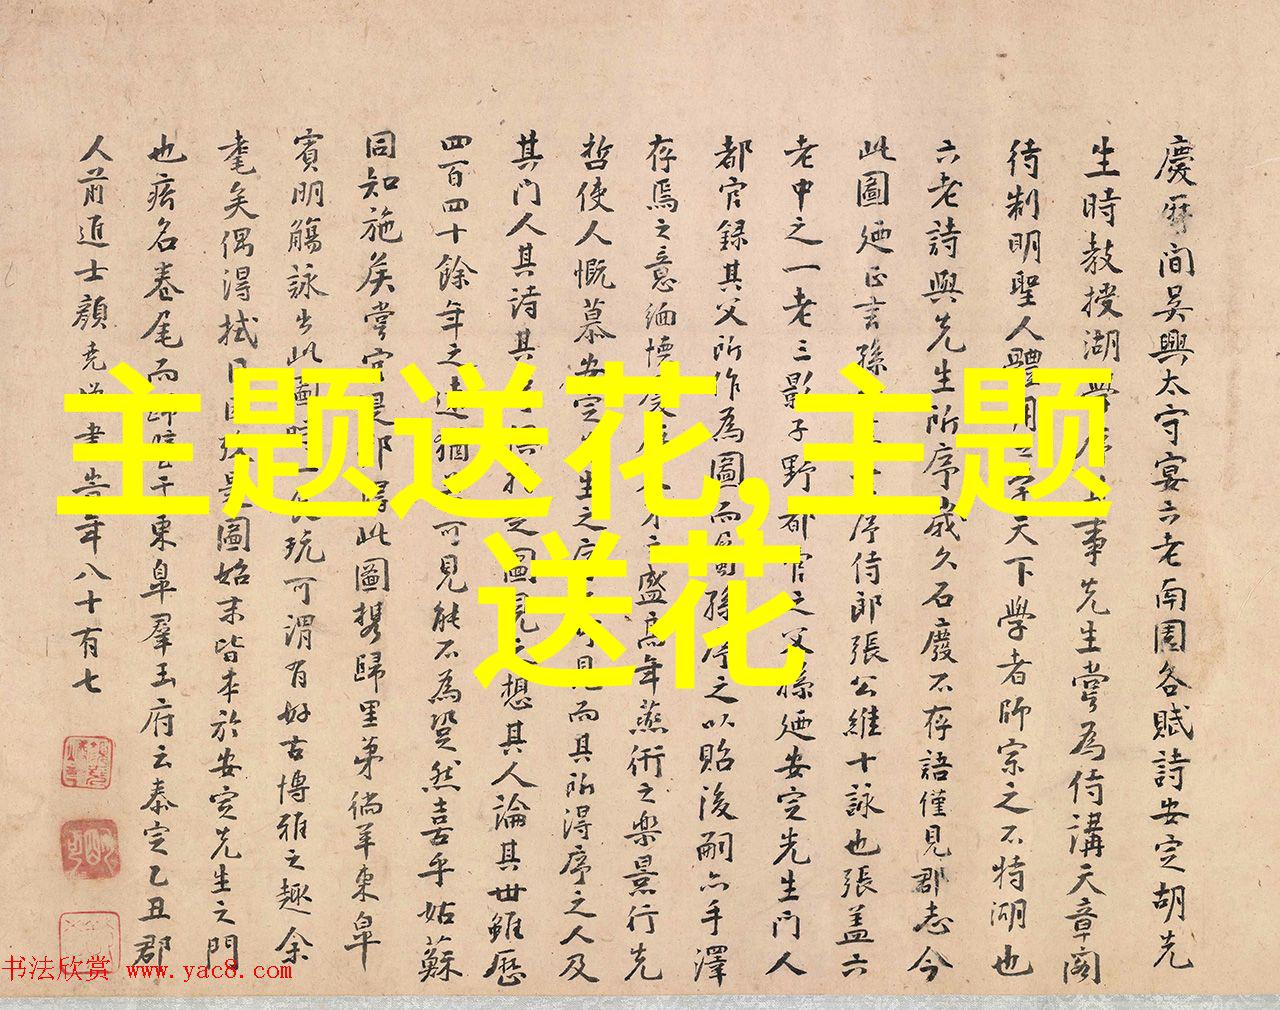 慶曆間吳興太守宴六老南園各賦詩安定胡先
生時教授湖學 事先生嘗為侍講天章閣
待制明聖人體用 天下學者師宗之不特湖也
六老詩與先生所序歲久石廢不存語僅見郡志今
此圖 序侍郎張公維十詠也張蓋六
老中之一老三影子野都官之父 安定先生門人
都官錄其父所作為圖而 序之以貽後嗣 手澤
存焉之意緬懷 慶 盛 年 術之樂景行先
哲使人慨慕安定先生之 見而其所得序之人及
其門人其詩其 之圖見 想其人論其世雖歷
四百四十餘年之 可見能不為 然喜乎姑蘇
同知施侯嘗 得此圖携歸里第徜羊東皐
賓明觴詠出此圖 玩可謂有好古博雅之趣余
耄矣偶得拭目 圖始末皆本於安定先生之門
也 名卷尾而歸 于東皐羣玉府云泰定乙丑郡
人前進士顏堯煥書 年八十有七
主题送花,主题
送花
书法欣赏 www.yac8.com